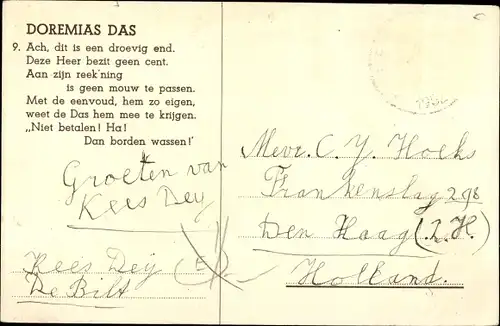 DOREMIAS DAS
9. Ach, dit is een droevig end.
Deze Heer bezit geen cent.
Aan zijn reek'ning
is geen mouw te passen.
Met de eenvoud, hem zo eigen,
weet de Das hem mee te krijgen.
„Niet betalen! Ha!
Dan borden wassen!'
Groeten van
Kees Dey
Kees Dey
De Bilt
Mevr. C. Y. Hoeks
Frankenslag 298
Den Haag (Z.H.)
Holland.